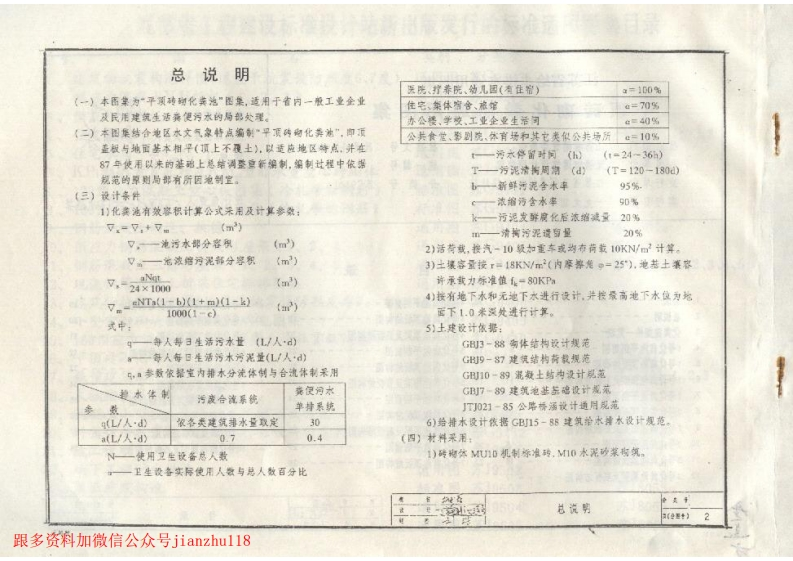 总说明
(一) 本图集为“平顶砖砌化粪池”图集,适用于省内一般工业企业
及民用建筑生活粪便污水的局部处理。
(二) 本图集结合地区水文气象特点编制“平顶砖砌化粪池”,即顶
盖板与地面基本相平(顶上不覆土),以适应地区特点,并在
87年使用以来的基础上总结调整重新编制,编制过程中依据
规范的原则局部有所因地制宜。
(三) 设计条件
1)化粪池有效容积计算公式采用及计算参数:
▽x=▽s+▽m (m³)
▽s—池污水部分容积 (m³)
▽m—池浓缩污泥部分容积 (m³)
▽s=αNqt/24×1000 (m³)
▽m=αNTa(1-b)(1+m)(1-k)/1000(1-c) (m³)
式中:
q——每人每日生活污水量 (L/人·d)
a——每人每日生活污水污泥量(L/人·d)
q,a参数依据室内排水分流体制与合流体制采用
排水体制 参数 污废合流系统 粪便污水单排系统
q(L/人·d) 依各类建筑排水量取定 30
a(L/人·d) 0.7 0.4
N——使用卫生设备总人数
α——卫生设备实际使用人数与总人数百分比
医院、疗养院、幼儿园(有住宿) α=100%
住宅、集体宿舍、旅馆 α=70%
办公楼、学校、工业企业生活间 α=40%
公共食堂、影剧院、体育场和其它类似公共场所 α=10%
t——污水停留时间 (h) (t=24~36h)
T——污泥清掏周期 (d) (T=120~180d)
b——新鲜污泥含水率 95%
c——浓缩污含水率 90%
k——污泥发酵腐化后浓缩减量 20%
m——清掏污泥遗留量 20%
2)活荷载,按汽-10级加重车或均布荷载10KN/m²计算。
3)土壤容量按r=18KN/m²(内摩擦角φ=25°),地基土壤容
许承载力标准值fk=80KPa
4)按有地下水和无地下水进行设计,并按最高地下水位为地
面下1.0米深处进行计算。
5)土建设计依据:
GBJ3-88 砌体结构设计规范
GBJ9-87 建筑结构荷载规范
GBJ10-89 混凝土结构设计规范
GBJ7-89 建筑地基基础设计规范
JTJ021-85 公路桥涵设计通用规范
6)给排水设计依据GBJ15-88 建筑给水排水设计规范。
(四) 材料采用:
1)砖砌体MU10机制标准砖、M10水泥砂浆砌筑。
总说明
2
跟多资料加微信公众号jianzhu118